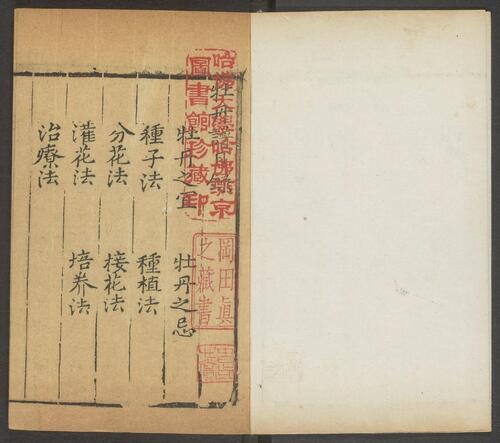 牡丹目錄
牡丹之宜 牡丹之忌
種子法 種植法
分花法 接花法
灌花法 培养法
治療法
哈佛大學哈佛燕京
圖書館珍藏印
岡田眞
之藏書